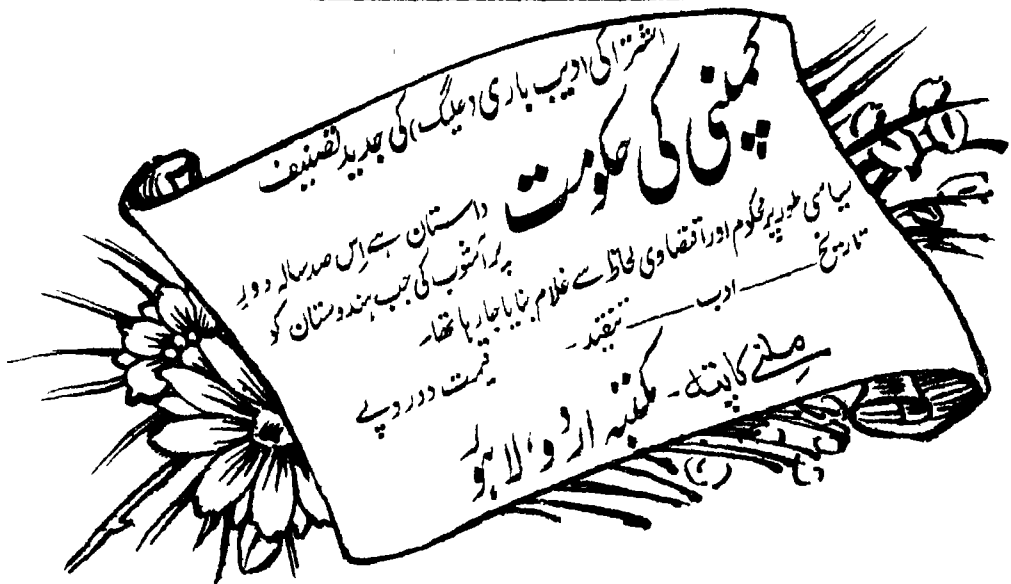 اشتراکی ادیب باری (علیگ) کی جدید تصنیف
کمپنی کی حکومت
داستان ہے اس صد سالہ دورِ
پر آشوب کی جب ہندوستان کو
سیاسی طور پر محکوم اور اقتصادی لحاظ سے غلام بنایا جا رہا تھا۔
تاریخ ــــ ادب ــــ تنقید ۔
قیمت دو روپے
ملنے کا پتہ ۔ مکتبہ اردو، لاہور